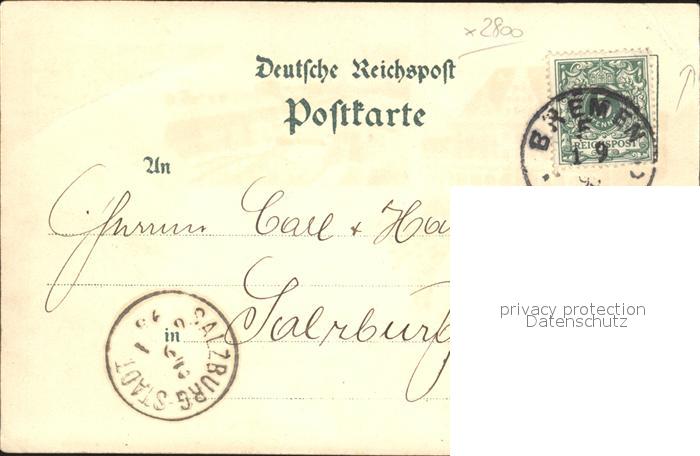 x2800
Deutsche Reichspost
Postkarte
BREMEN
REICHSPOST
1 9
An
Herrn Carl + Ha
privacy protection
Datenschutz
in Salzburg
SALZBURG-STADT